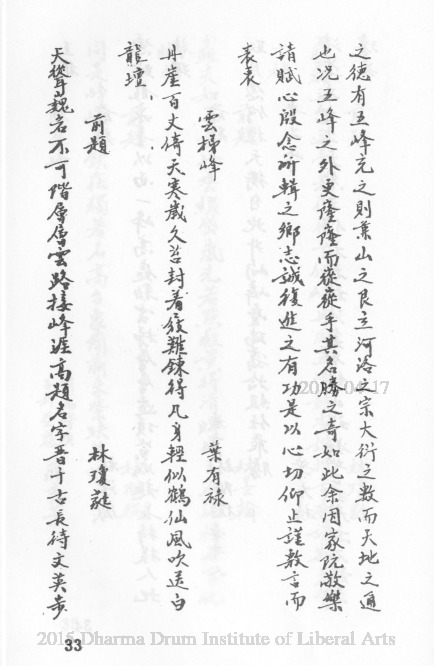 之德有五峰充之則葉山之艮立河洛之宗大衍之數而天地之通
也況五峰之外更薩薩而從從乎其名勝之奇如此余因家阮敬樂
請賦心殷念所輯之鄉志誠後進之有功是以心切仰止謹數言而
表表
雲梯峰 葉有祿
丹崖百丈倚天寒歲久苔封着發難鍊得凡身輕似鶴仙風吹送白
龍壇
前題 林瓊蕤
天聳巍岩不可階層層雲路接峰涯高題名字晉千古長待文英步
33
2015-04-17
2015 Dharma Drum Institute of Liberal Arts